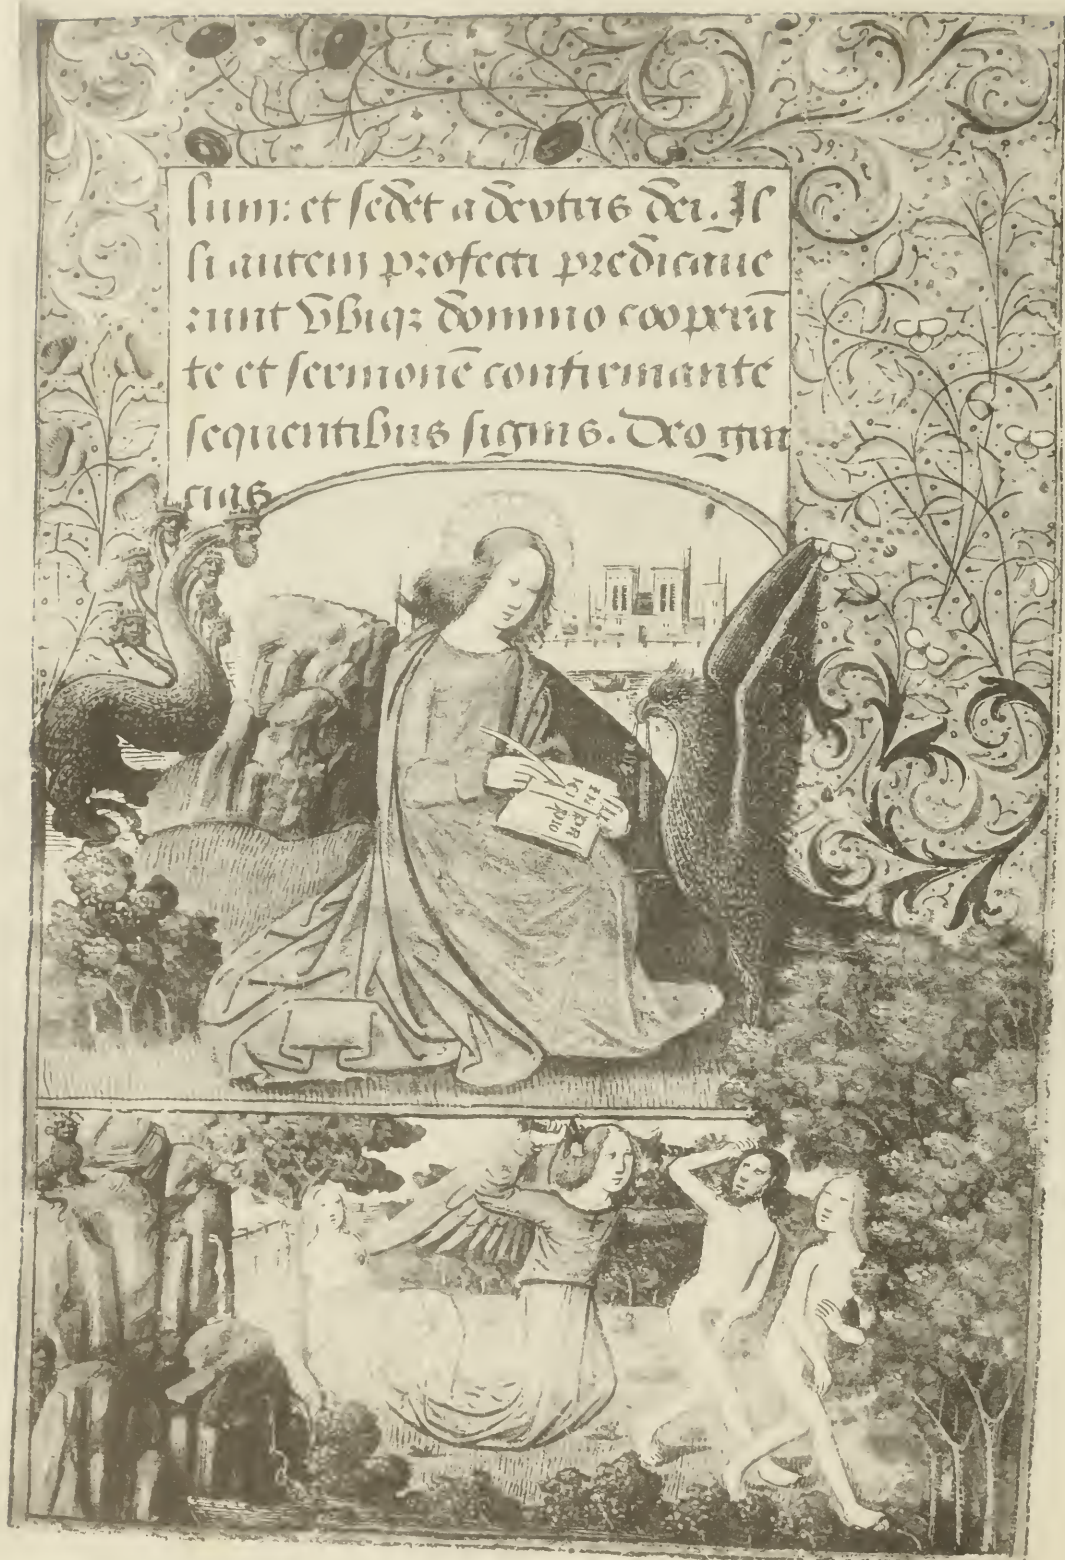 lum: et sedet a dextris dei. Il
li autem profecti predicaue
runt vbiqꝫ domino cooperā
te et sermonē confirmante
sequentibus signis. Deo gra
cias
IN
PR